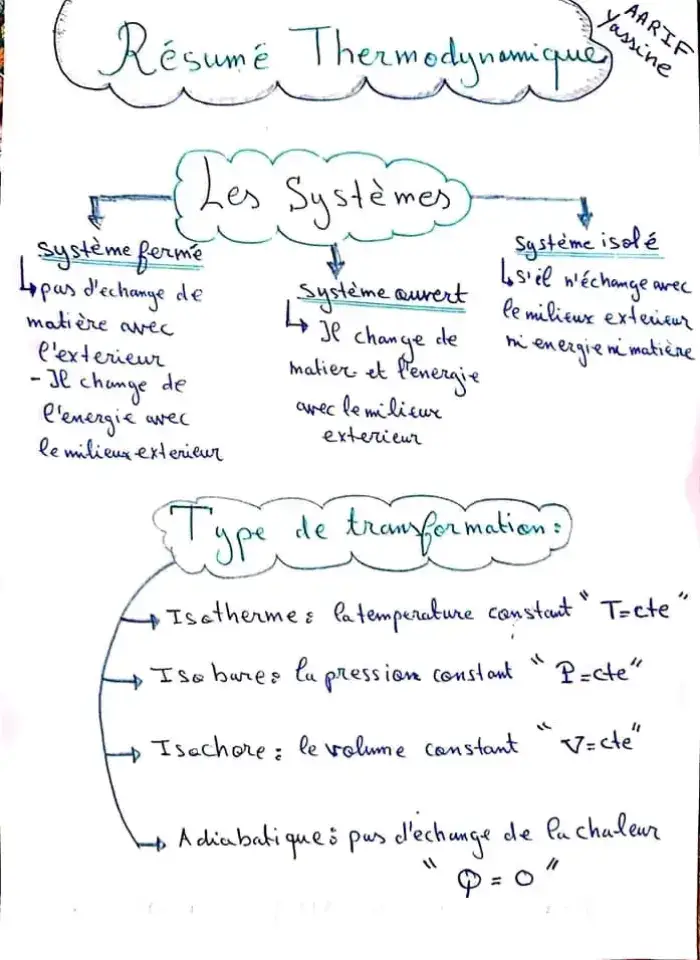 Résumé Thermodynamique
AARIF
Yassine
Les Systèmes
Système fermé
pas d'echange de
matière avec
l'exterieur
- Il change de
l'energie avec
le milieux exterieur
Système ouvert
Il change de
matier et l'energie
avec le milieux
exterieur
Système isolé
s'il n'échange avec
le milieux exterieur
ni energie ni matière
Type de transformation :
Isotherme : la temperature constant " T=cte "
Isobare : la pression constant " P=cte "
Isochore : le volume constant " V=cte "
Adiabatique : pas d'échange de la chaleur
" Q = 0 "